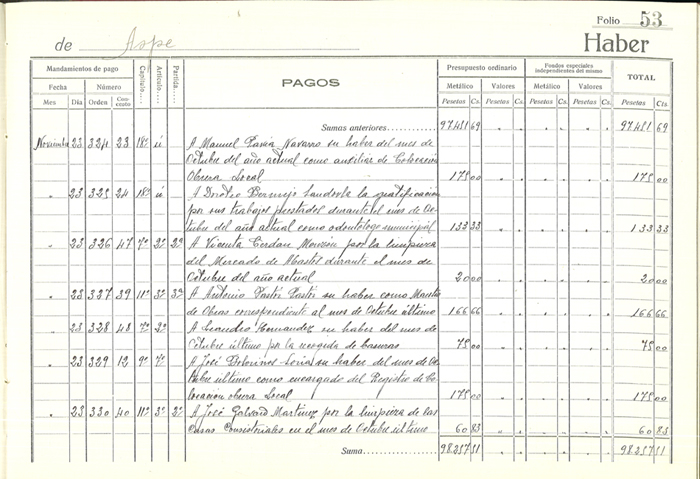 Folio 53
de Aspe Haber
Mandamientos de pago Capítulo Artículo Partida PAGOS Presupuesto ordinario Fondos especiales independientes del mismo TOTAL
Fecha Número Metálico Valores Metálico Valores
Mes Día Orden Concepto Pesetas Cs. Pesetas Cs. Pesetas Cs. Pesetas Cts
Sumas anteriores 97451 69 97451 69
Noviembre 23 324 23 18º A Manuel Pavia Navarro su haber del mes de
Octubre del año actual como auxiliar de Colocación
Obrera Local 175 00 175 00
" 23 325 24 18º A Bermejo la gratificación
por sus trabajos prestados durante el mes de Oc-
tubre del año actual como odontólogo municipal 133 33 133 33
" 23 326 47 7º 3º 2º A Vicenta Cerdan por la limpieza
del Mercado de Abastos durante el mes de
Octubre del año actual 20 00 20 00
" 23 327 39 11º 3º 3º A Antonio Pastor Pastor su haber como Maestro
de Obras correspondiente al mes de Octubre último 166 66 166 66
" 23 328 48 7º 2º A Leandro Hernandez su haber del mes de
Octubre último por la recogida de basuras 75 00 75 00
" 23 329 12 9º 7º A José Soria su haber del mes de Oc-
tubre último como encargado del Registro de Co-
locacion obrera Local 175 00 175 00
" 23 330 40 11º 3º 2º A José Galvañ Martinez por la limpieza de las
Casas Consistoriales en el mes de Octubre último 60 83 60 83
Suma 98257 51 98257 51